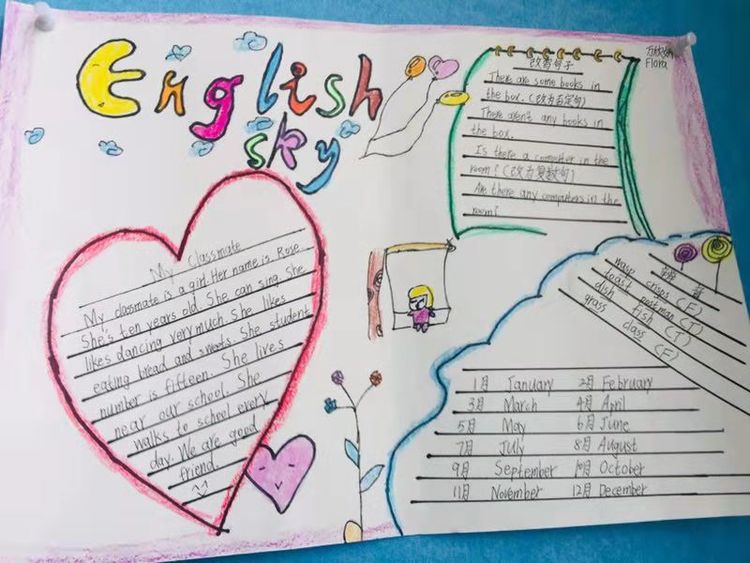 English
sky
Flora
改写句子
There are some books in
the box. (改为否定句)
There aren't any books in
the box.
Is there a computer in the
room? (改为复数句)
Are there any computers in the
room?
My Classmate
My classmate is a girl. Her name is Rose
She's ten years old. She can sing. She
likes dancing very much. She likes
eating bread and sweets. She student
number is fifteen. She lives
near our school. She
walks to school every
day. We are good
friend.
wasp crisps (F)
toast postman (T)
dish fish (T)
grass class (F)
1月 January 2月 February
3月 March 4月 April
5月 May 6月 June
7月 July 8月 August
9月 September 10月 October
11月 November 12月 December